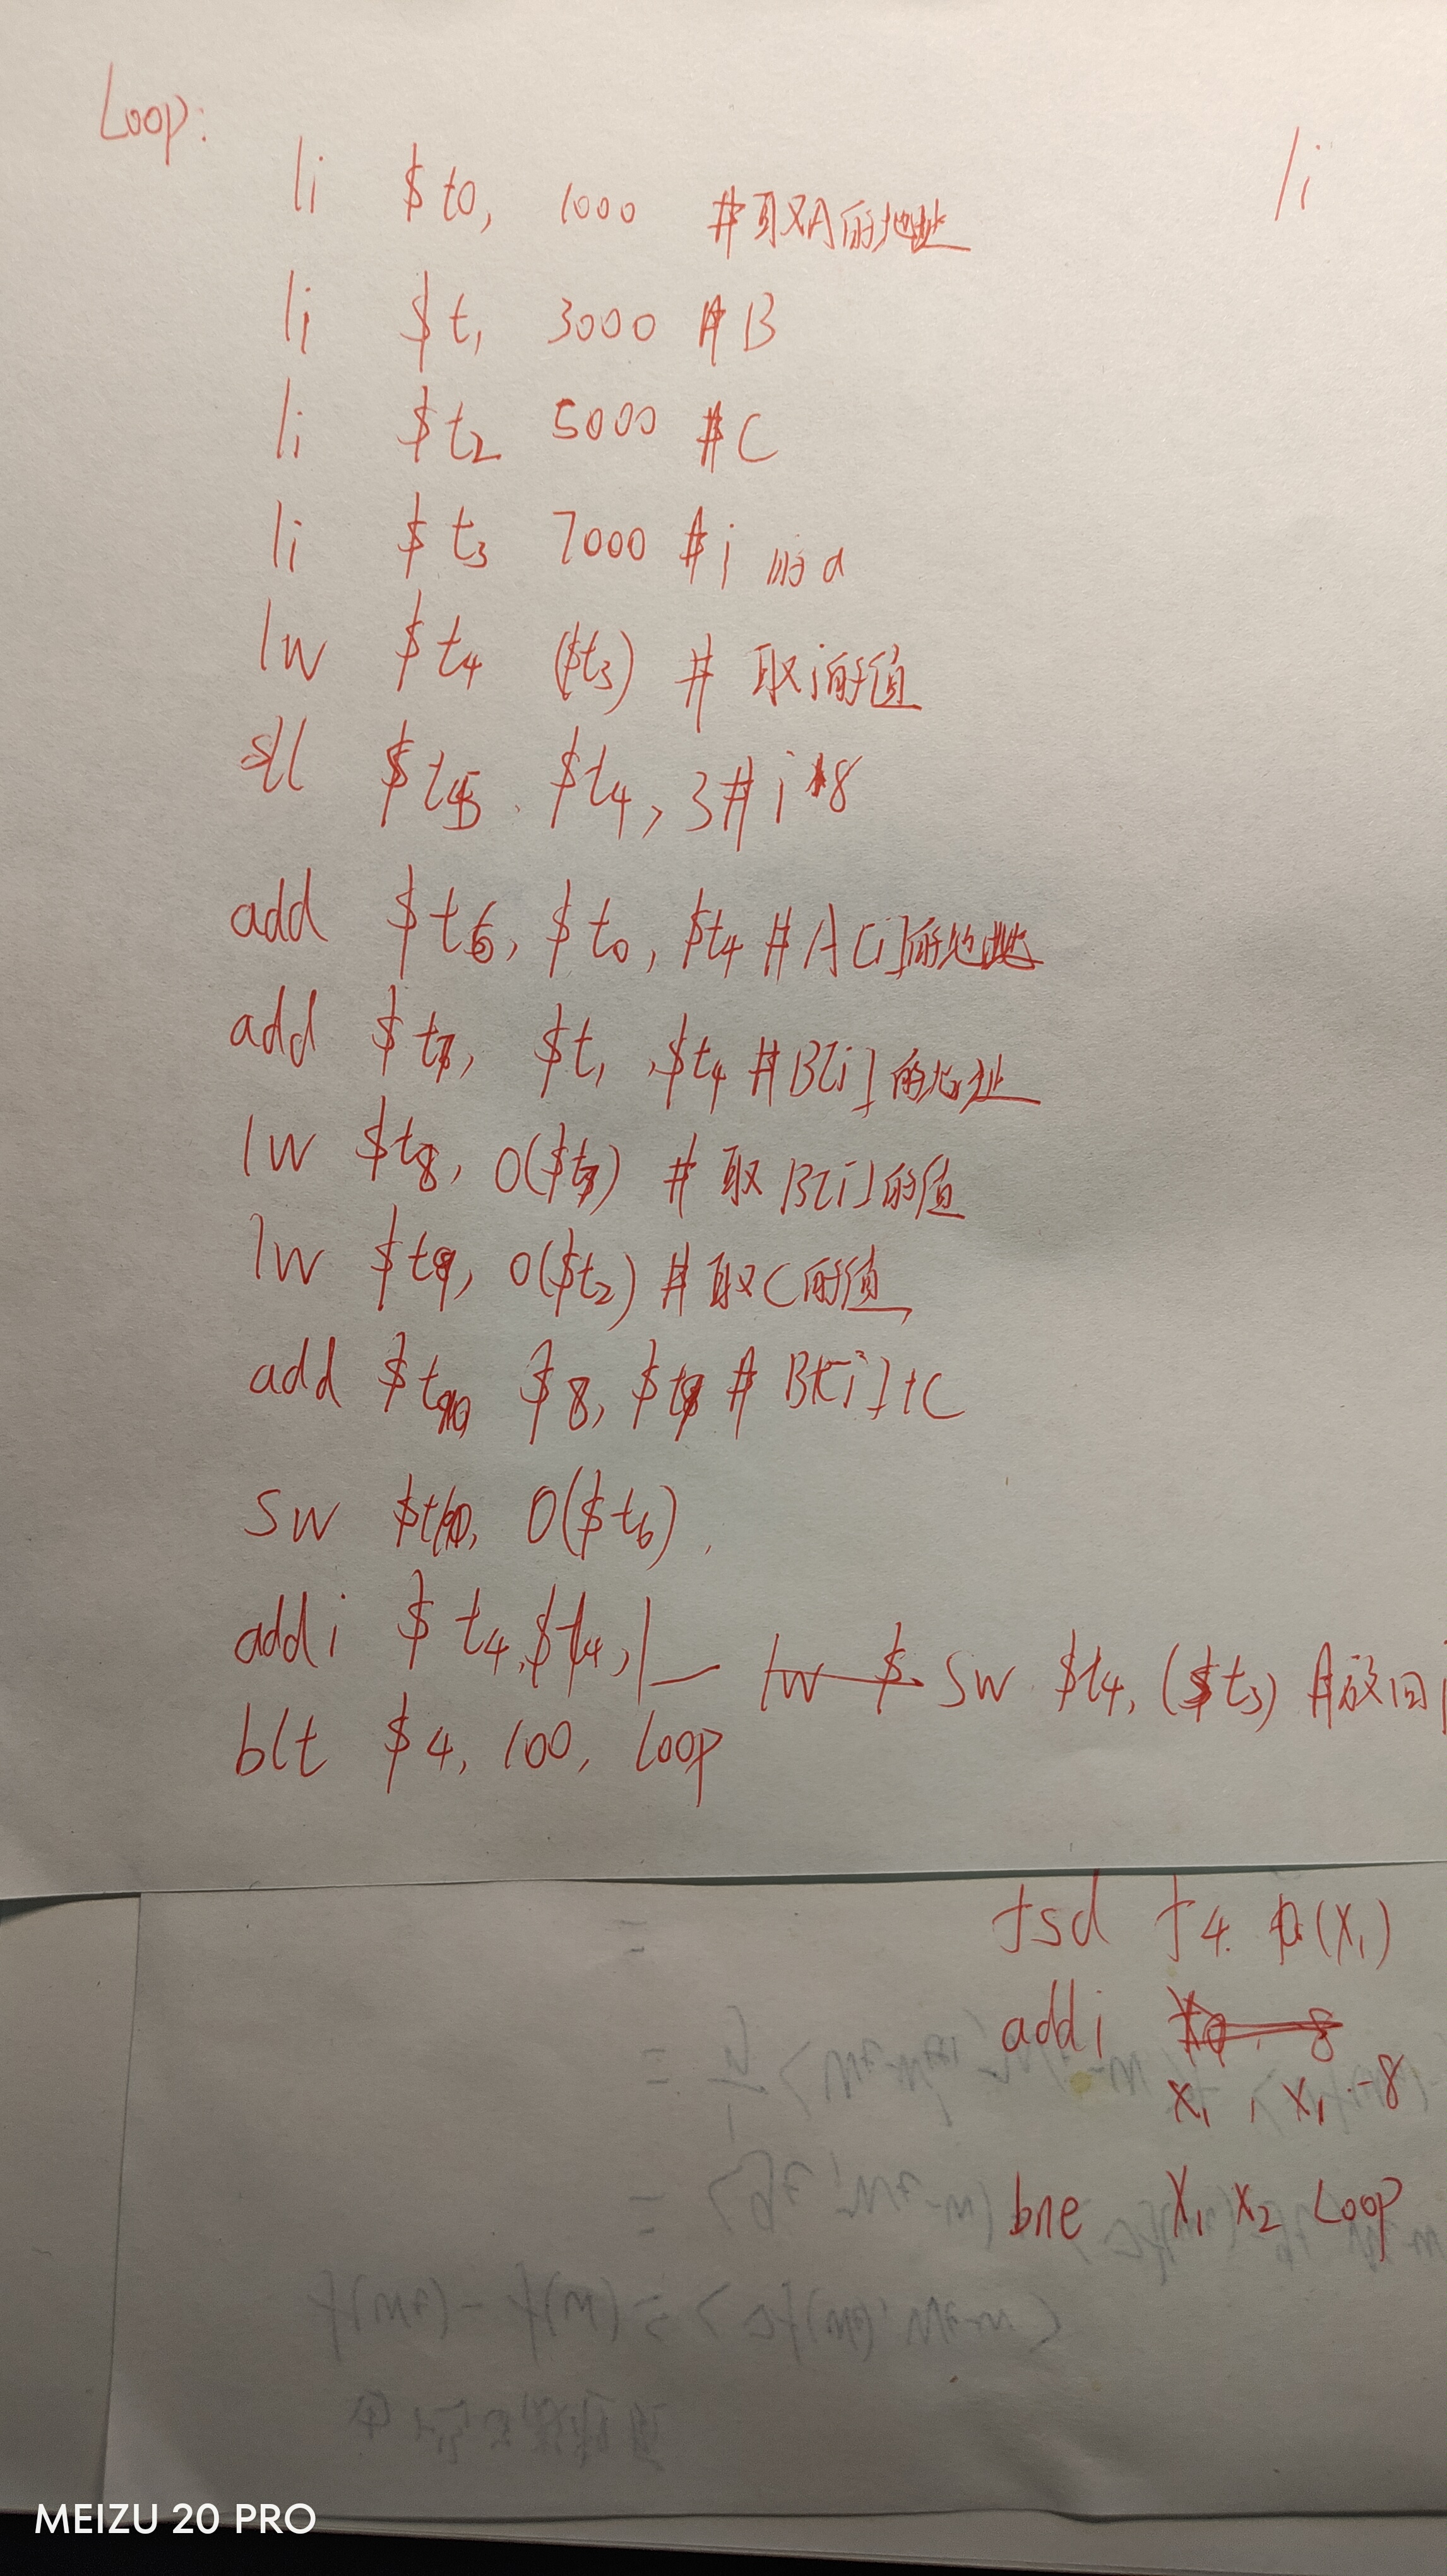 Loop:
li $t0, 1000 #取A的地址
li
li $t1 3000 #B
li $t2 5000 #C
li $t3 7000 #i的a
lw $t4 ($t3) # 取i的值
sll $t5, $t4, 3 #i*8
add $t6, $t0, $t4 #A[i]的地址
add $t7, $t1, $t4 #B[i]的地址
lw $t8, 0($t7) # 取B[i]的值
lw $t9, 0($t2) #取C的值
add $t10 $8, $t9 # B[i]+C
sw $t10, 0($t6)
addi $t4,$t4,1 sw $t4, ($t3) #放回
blt $4, 100, loop
fsd f4. 0(x1)
addi
x1, x1 -8
bne x1 x2 Loop
MEIZU 20 PRO